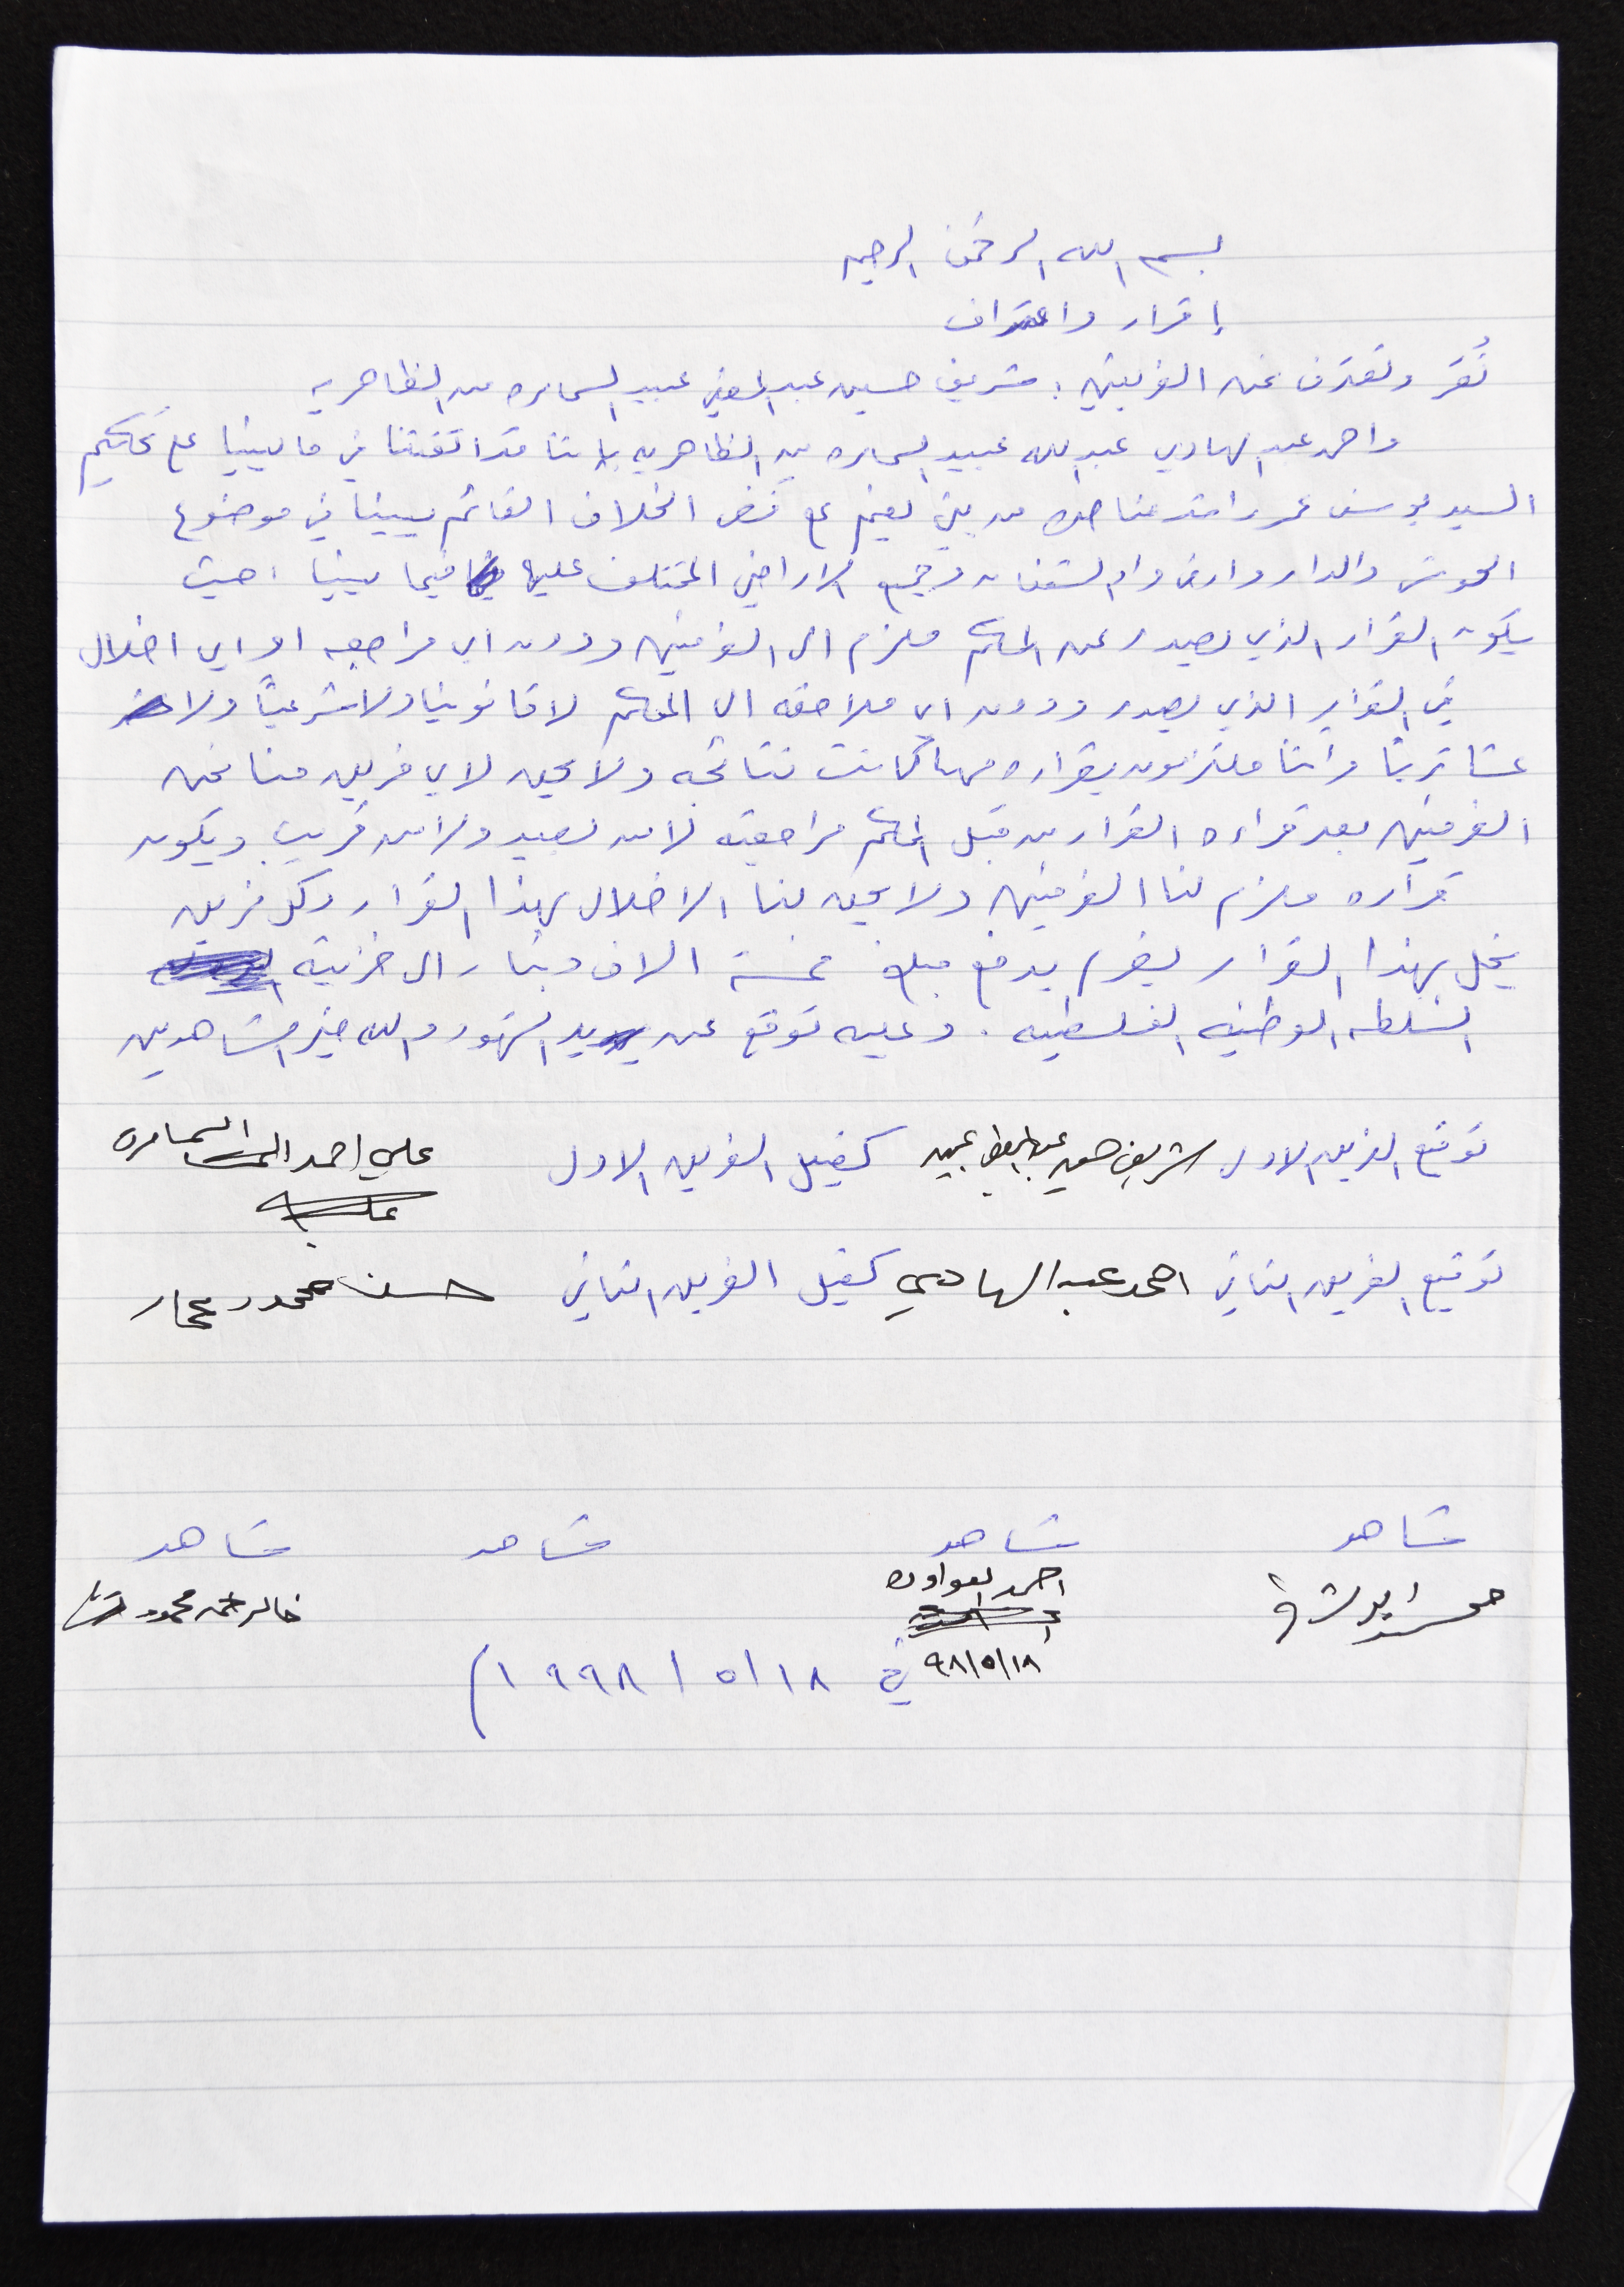 بسم الله الرحمن الرحيم
إقرار واعتراف
نُقر ونعترف نحن الفريقين : شريف حسين عبد المعطي عبيد السمامره من الظاهريه
واحمد عبد الهادي عبد الله عبيد السمامره من الظاهريه باننا قد اتفقنا في ما بيننا على تحكيم
السيد يوسف عمر راشد مناصره من بني نعيم على فض الخلاف القائم بيننا في موضوع
الحوش والدار وارض واد الشقفان وجميع الاراضي المختلف عليها فيما بيننا ، حيث
يكون القرار الذي يصدر عن المحكم ملزم الى الفريقين ودون اي مراجعه او اي اخلال
في القرار الذي يصدر ودون اي ملاحقه الى المحكم لا قانونيا ولا شرعياً ولا
عشائرياً واننا ملتزمون بقراره مهما كانت نتائجه ولا يحق لاي فريق منا نحن
الفريقين بعد قراءه القرار من قبل المحكم مراجعته لا من بعيد ولا من قريب ويكون
قراره ملزم لنا الفريقين ولا يحق لنا الاخلال بهذا القرار وكل فريق
يخل بهذا القرار يغرم بدفع مبلغ خمسة الاف دينار الى خزينة
السلطه الوطنيه الفلسطينيه . وعليه نوقع عن يد الشهود والله خير الشاهدين
توقيع الفريق الاول شريف حسين عبد المعطي عبيد كفيل الفريق الاول علي احمد السمامرة
توقيع الفريق الثاني احمد عبد الهادي كفيل الفريق الثاني حسن محمود عمار
شاهد شاهد شاهد شاهد
احمد العواوده
خالد محمود
٩٨/٥/١٨
في ١٨/٥/١٩٩٨م